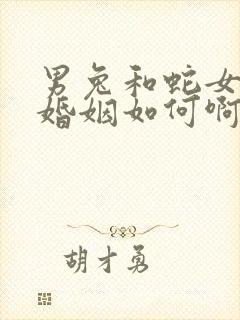 男兔和蛇女
婚姻如何啊
胡才勇